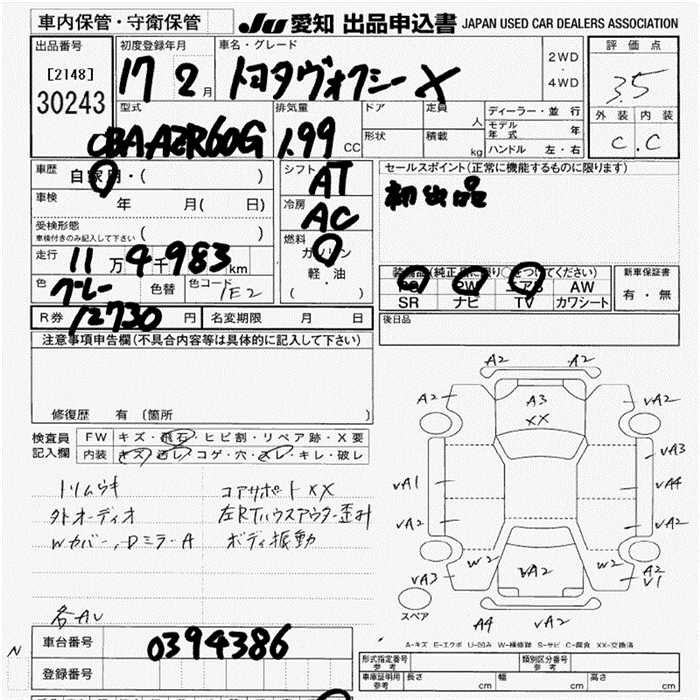 車内保管・守衛保管 JU 愛知 出品申込書 JAPAN USED CAR DEALERS ASSOCIATION
出品番号 初度登録年月 車名・グレード 評価点
[2148] 17 2 月 トヨタヴォクシー X 2WD ・ 4WD 3.5
30243
型式 排気量 ドア 定員 人 ディーラー・並行 外装 内装
CBA-AZR60G 1.99 CC 形状 積載 kg モデル年式 年 C . C
ハンドル 左・右
車歴 自家用・( ) シフト AT セールスポイント(正常に機能するものに限ります)
車検 年 月( 日) 冷房 AC 初出品
受検形態
車検付きのみ記入して下さい
燃料 ガソリン
走行 11 万 4 千 983 km 軽・油
( )
色 グレー 色替 色コード 1E2
装備品(純正品に限り○をつけてください) 新車保証書
PS PW エアB AW 有・無
SR ナビ TV カワシート
R券 12730 円 名変期限 月 日 後日品
注意事項申告欄(不具合内容等は具体的に記入して下さい)
修復歴 有 〔箇所 〕
検査員記入欄 FW キズ・飛石・ヒビ割・リペア跡・X要
内装 キズ・汚レ・コゲ・穴・スレ・キレ・破レ
トリムウキ コアサポートXX
外オーディオ 左RTハウスアウター歪み
Wカバー、DミラーA ボディ振動
各AU
A2 A2
A2 A3 VA2
XX
VA3
VA1 VA4
VA2 VA2
W2 W2
VA3 VA2 A2
V1
スペア
A4 VA2
A-キズ E-エクボ U-凹み W-補修跡 S-サビ C-腐食 XX-交換済
N
車台番号 0394386
登録番号
形式指定番号 参考 類別区分番号 参考
車庫証明用 参考 長さ cm 幅 cm 高さ cm